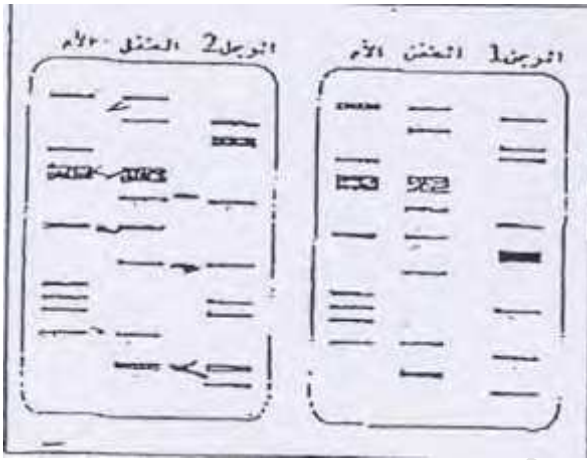 الرجل 1 الطفل الأم
الرجل 2 الطفل الأم